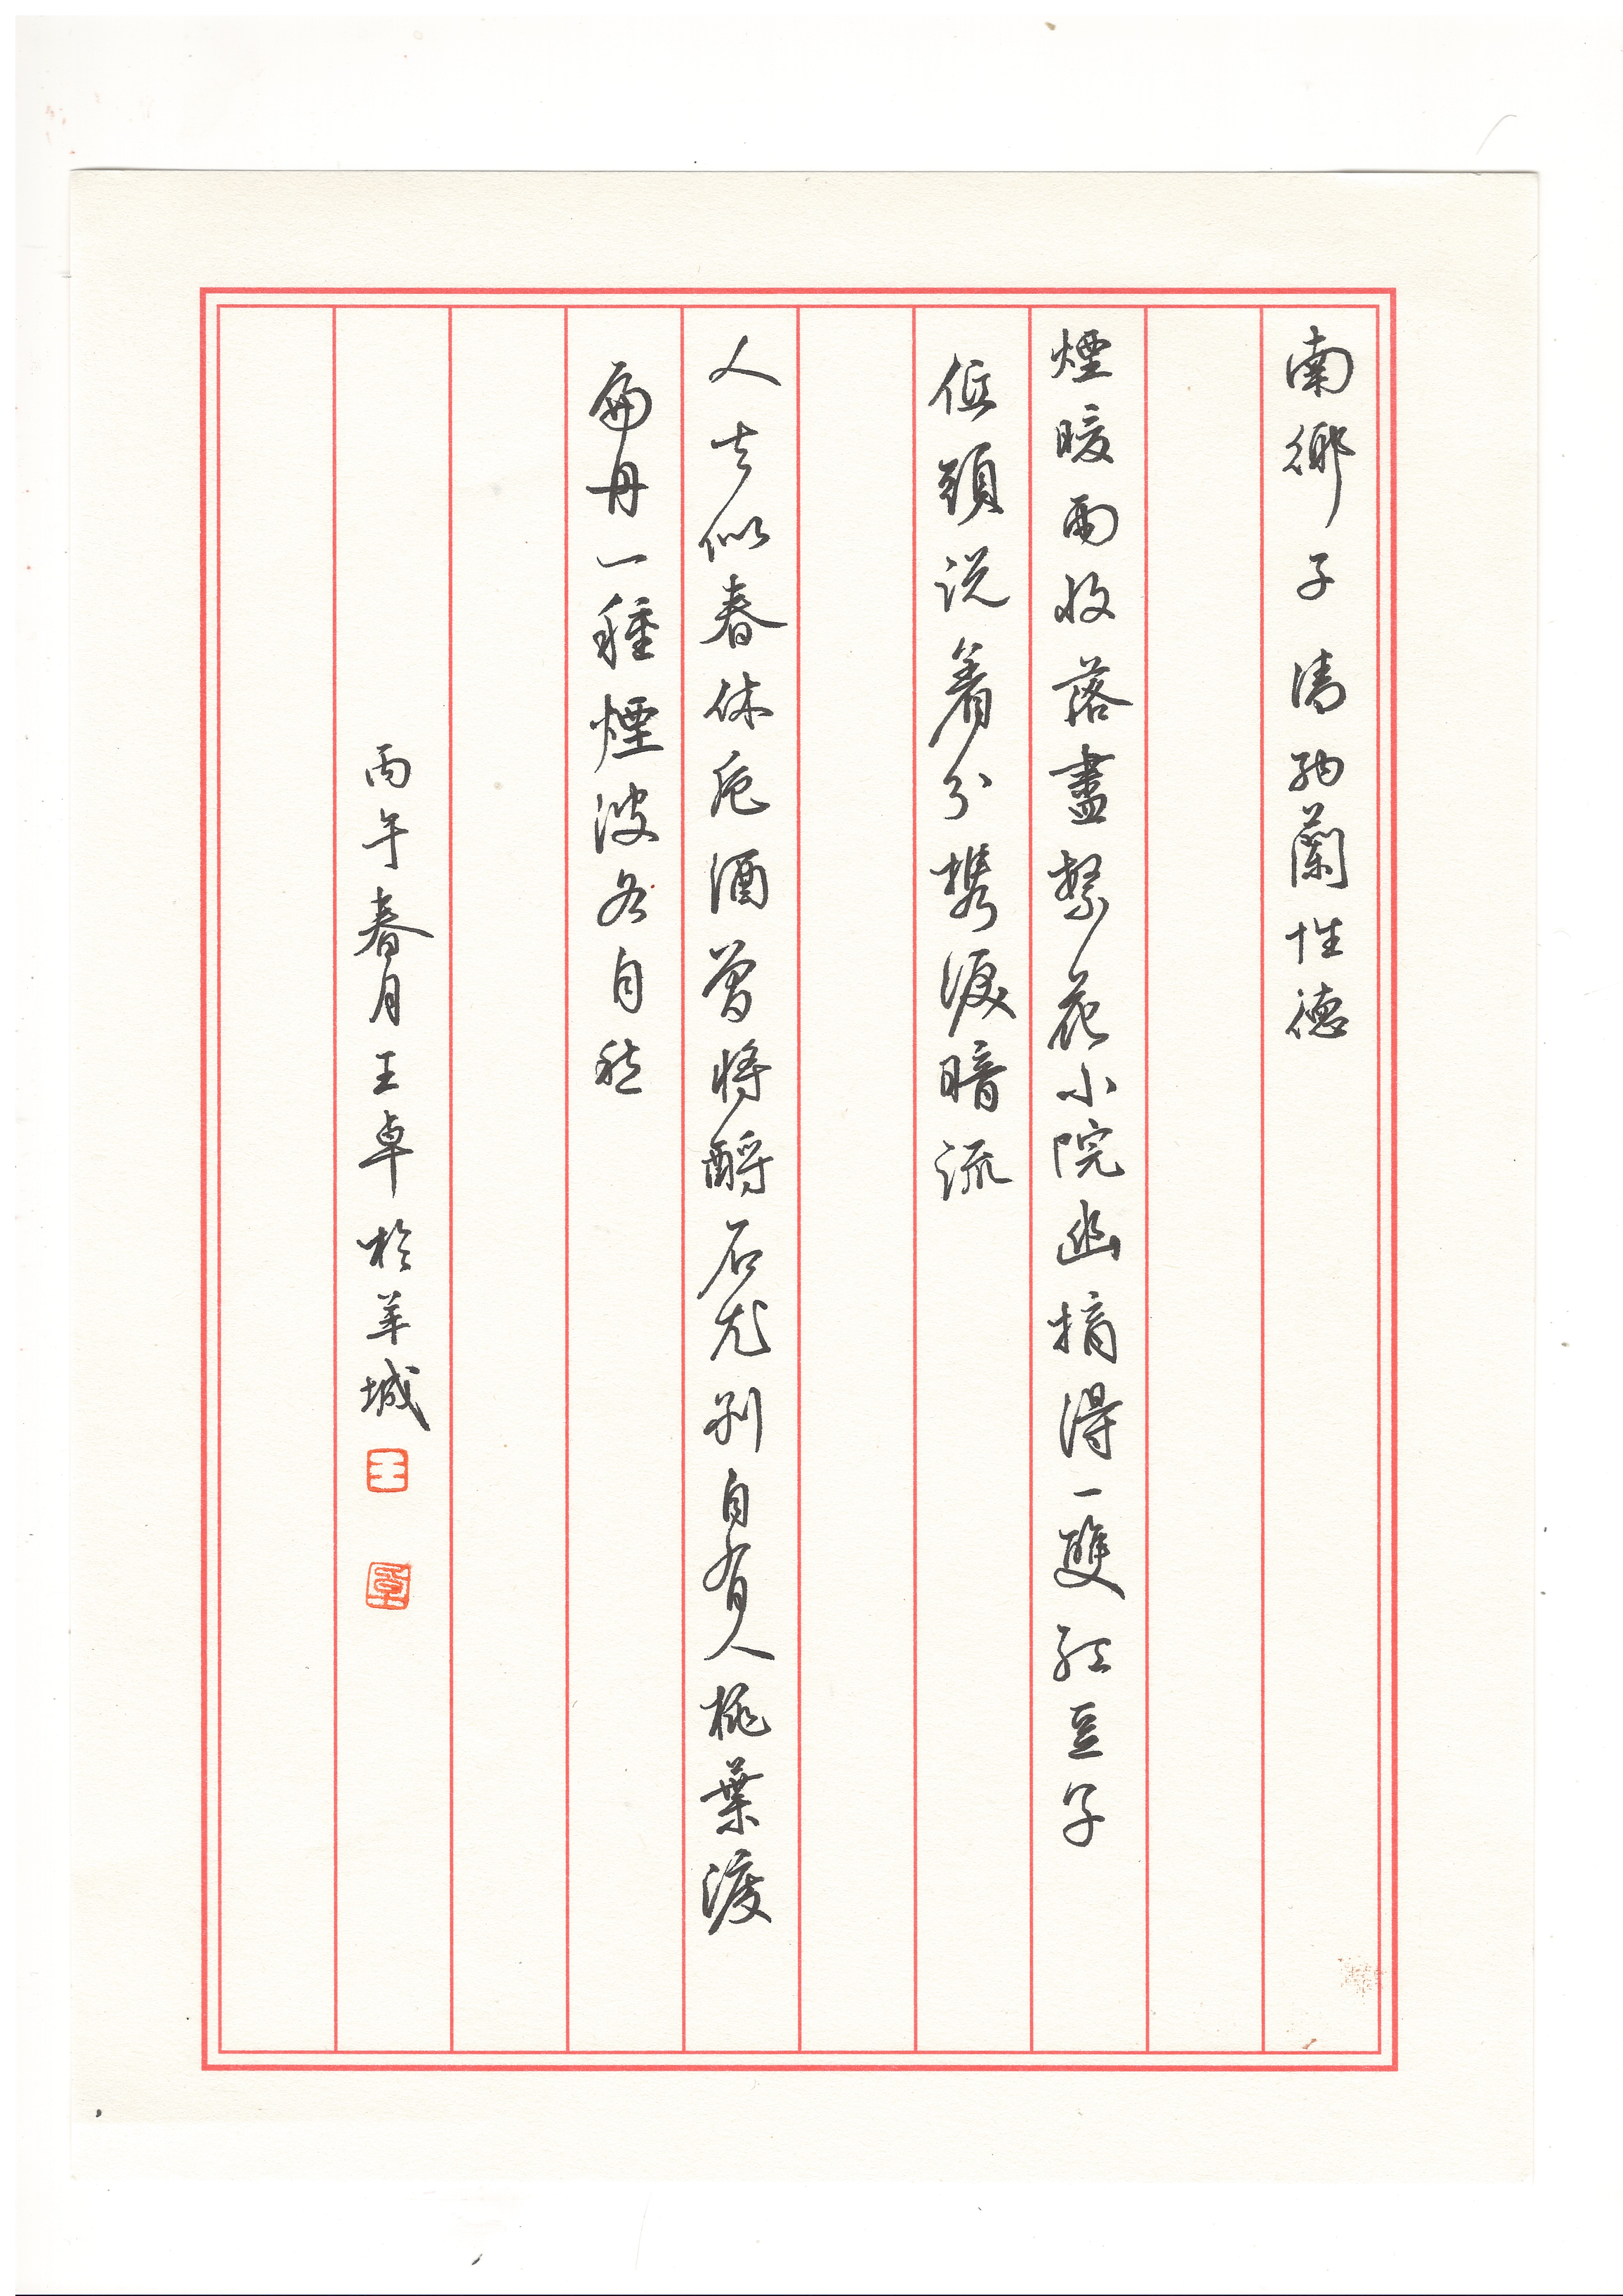 南鄉子 清 納蘭性德
煙暖雨收落盡繁花小院幽摘得一雙紅豆子
低頭说着分攜淚暗流
人去似春休卮酒曾將酹石尤別自有人桃葉渡
扁舟一種煙波各自愁
丙午春月王卓於羊城
王
卓